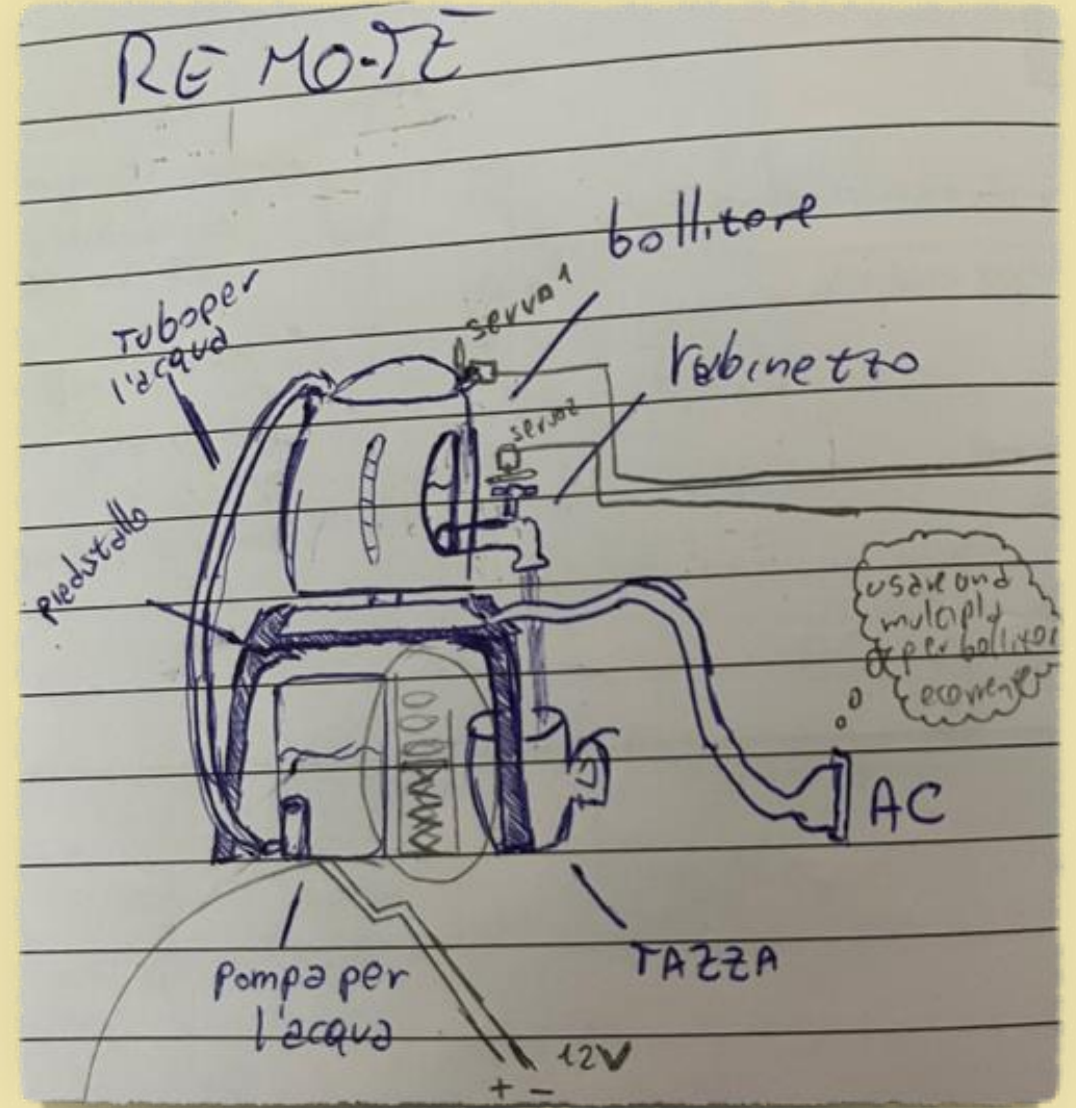 RE MO-TE
bollitore
servo 1
Tubo per
l'acqua
rubinetto
servo2
piedistallo
usare una
multipla
per bollitore
AC
TAZZA
Pompa per
l'acqua
12V
+ -